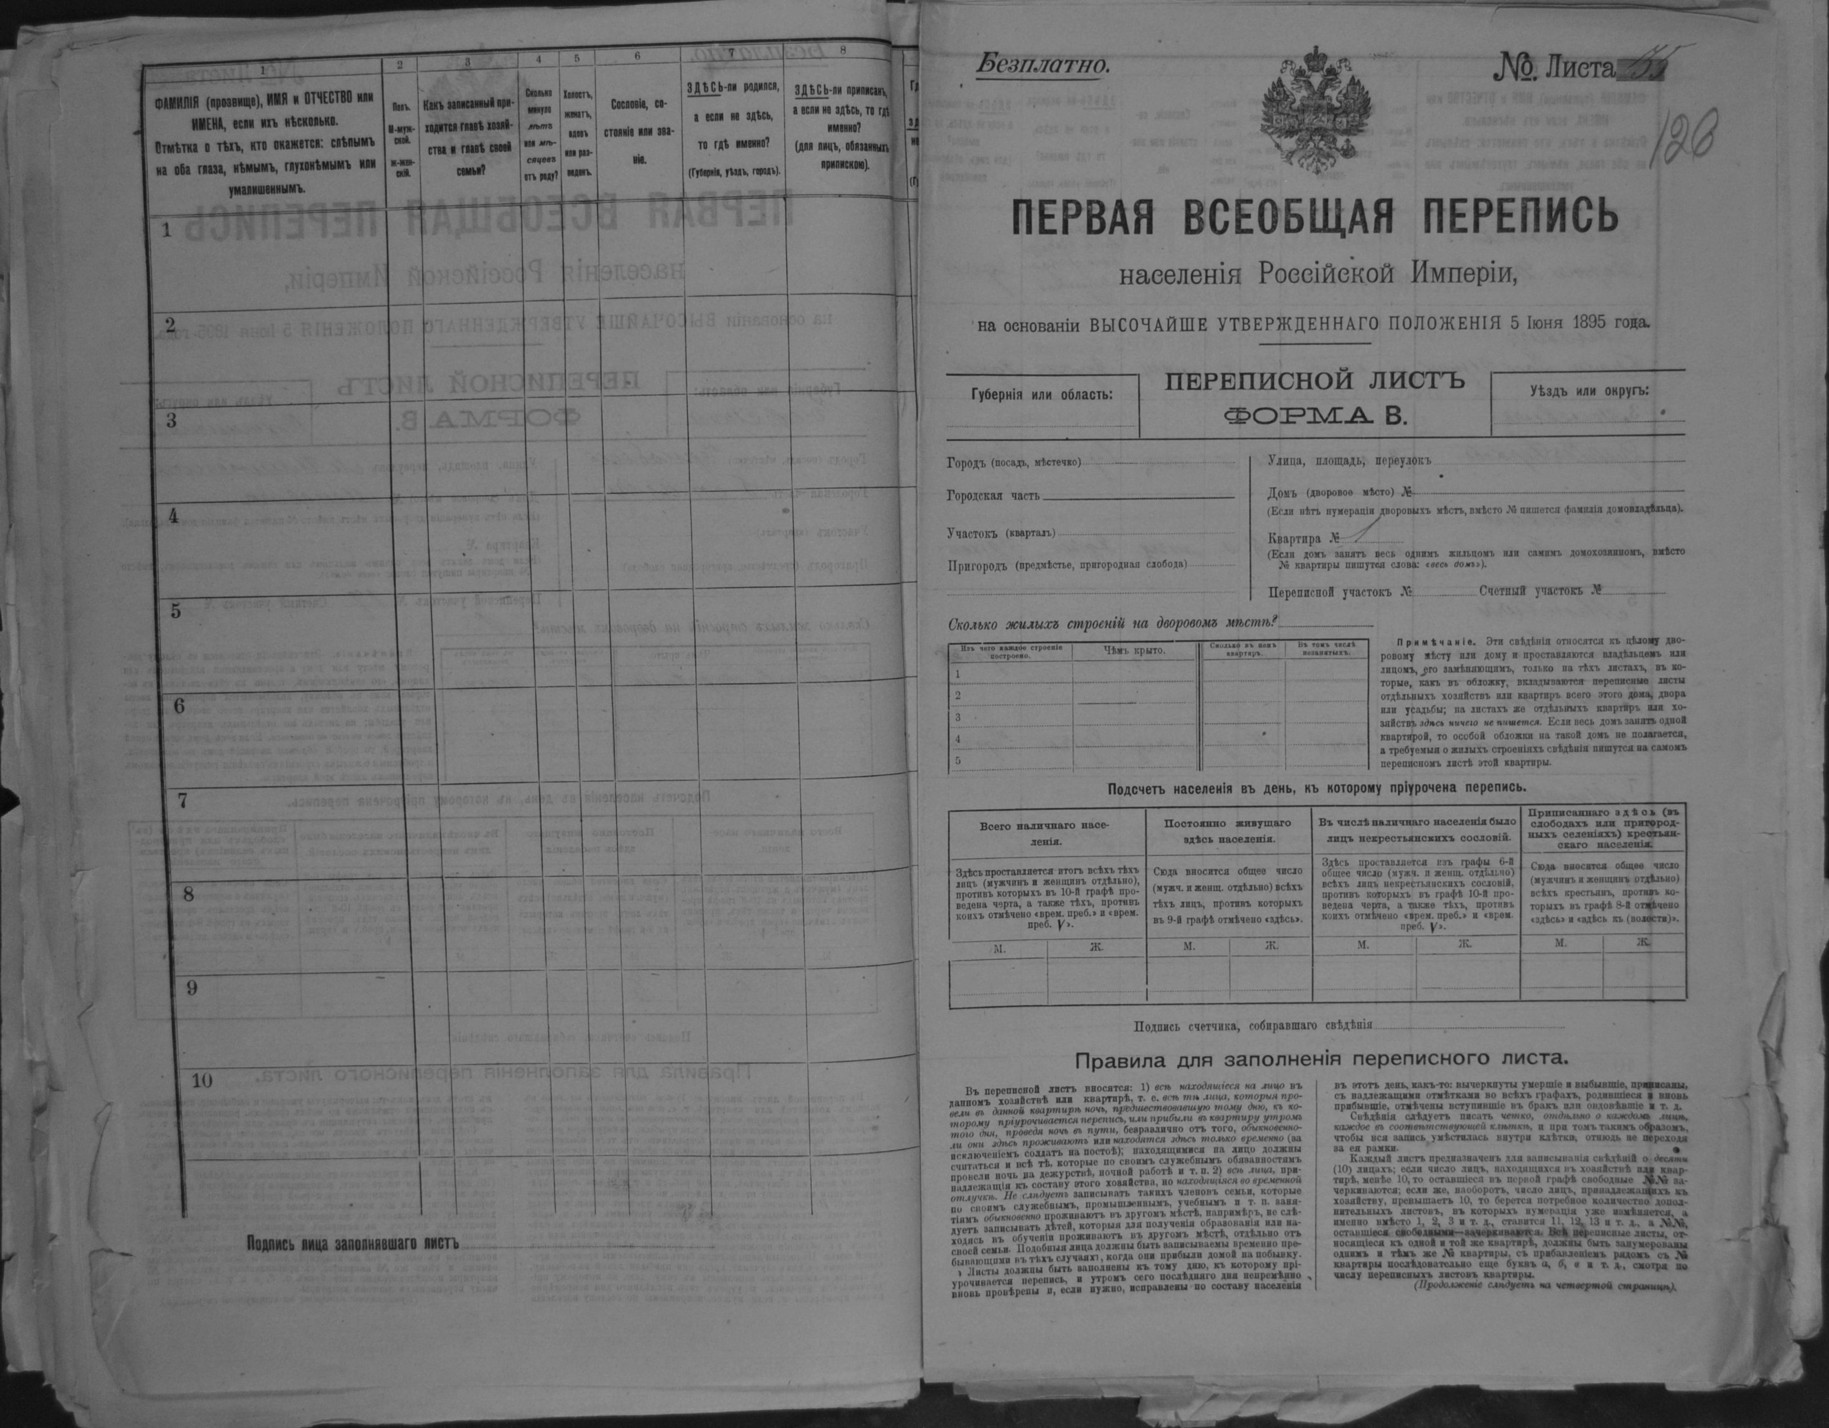 1
2
3
4
5
6
7
8
ФАМИЛІЯ (прозвище), ИМЯ и ОТЧЕСТВО или
ИМЕНА, если ихъ нѣсколько.
Отмѣтка о тѣхъ, кто окажется: слѣпымъ
на оба глаза, нѣмымъ, глухонѣмымъ или
умалишеннымъ.
Полъ.
М-муж-
ской.
Ж-жен-
скій.
Какъ записанный при-
ходится главѣ хозяй-
ства и главѣ своей
семьи?
Сколько
минуло
лѣтъ
или мѣ-
сяцевъ
отъ роду?
Холостъ,
женатъ,
вдовъ
или раз-
веденъ.
Сословіе, со-
стояніе или зва-
ніе.
ЗДѢСЬ-ли родился,
а если не здѣсь,
то гдѣ именно?
(Губернія, уѣздъ, городъ).
ЗДѢСЬ-ли приписанъ,
а если не здѣсь, то гдѣ
именно?
(для лицъ, обязанныхъ
припискою).
1
2
3
4
5
6
7
8
9
10
Подпись лица заполнявшаго листъ
Безплатно.
№ Листа
126
ПЕРВАЯ ВСЕОБЩАЯ ПЕРЕПИСЬ
населенія Россійской Имперіи,
на основаніи ВЫСОЧАЙШЕ УТВЕРЖДЕННАГО ПОЛОЖЕНІЯ 5 Іюня 1895 года.
Губернія или область:
ПЕРЕПИСНОЙ ЛИСТЪ
ФОРМА В.
Уѣздъ или округъ:
Городъ (посадъ, мѣстечко)
Городская часть
Участокъ (кварталъ)
Пригородъ (предмѣстье, пригородная слобода)
Улица, площадь, переулокъ
Домъ (дворовое мѣсто) №
(Если нѣтъ нумераціи дворовыхъ мѣстъ, вмѣсто № пишется фамилія домовладѣльца).
Квартира № 1
(Если домъ занятъ весь однимъ жильцомъ или самимъ домохозяиномъ, вмѣсто
№ квартиры пишутся слова: «весь домъ»).
Переписной участокъ № Счетный участокъ №
Сколько жилыхъ строеній на дворовомъ мѣстѣ?
Изъ чего каждое строеніе
построено.
Чѣмъ крыто.
Сколько въ немъ
квартиръ.
Въ томъ числѣ
незанятыхъ.
1
2
3
4
5
Примѣчаніе. Эти свѣдѣнія относятся къ цѣлому дво-
ровому мѣсту или дому и проставляются владѣльцемъ или
лицомъ, его замѣняющимъ, только на тѣхъ листахъ, въ ко-
торые, какъ въ обложку, вкладываются переписные листы
отдѣльныхъ хозяйствъ или квартиръ всего этого дома, двора
или усадьбы; на листахъ же отдѣльныхъ квартиръ или хо-
зяйствъ здѣсь ничего не пишется. Если весь домъ занятъ одной
квартирой, то особой обложки на такой домъ не полагается,
а требуемыя о жилыхъ строеніяхъ свѣдѣнія пишутся на самомъ
переписномъ листѣ этой квартиры.
Подсчетъ населенія въ день, къ которому пріурочена перепись.
Всего наличнаго насе-
ленія.
Здѣсь проставляется итогъ всѣхъ тѣхъ
лицъ (мужчинъ и женщинъ отдѣльно),
противъ которыхъ въ 10-й графѣ про-
ведена черта, а также тѣхъ, противъ
коихъ отмѣчено «врем. преб.» и «врем.
преб. V».
М. Ж.
Постоянно живущаго
здѣсь населенія.
Сюда вносится общее число
(мужч. и женщ. отдѣльно) всѣхъ
тѣхъ лицъ, противъ которыхъ
въ 9-й графѣ отмѣчено «здѣсь».
М. Ж.
Въ числѣ наличнаго населенія было
лицъ некрестьянскихъ сословій.
Здѣсь проставляется изъ графы 6-й
общее число (мужч. и женщ. отдѣльно)
всѣхъ лицъ некрестьянскихъ сословій,
противъ которыхъ въ графѣ 10-й про-
ведена черта, а также тѣхъ, противъ
коихъ отмѣчено «врем. преб.» и «врем.
преб. V».
М. Ж.
Приписаннаго здѣсь (въ
слободахъ или пригород-
ныхъ селеніяхъ) крестьян-
скаго населенія.
Сюда вносится общее число
(мужчинъ и женщинъ отдѣльно)
всѣхъ крестьянъ, противъ ко-
торыхъ въ графѣ 8-й отмѣчено
«здѣсь» и «здѣсь къ (волости)».
М. Ж.
Подпись счетчика, собиравшаго свѣдѣнія
Правила для заполненія переписного листа.
Въ переписной листъ вносятся: 1) всѣ находящіеся на лицо въ
данномъ хозяйствѣ или квартирѣ, т. е. всѣ тѣ лица, которыя про-
вели въ данной квартирѣ ночь, предшествовавшую тому дню, къ ко-
торому пріурочивается перепись, или прибыли въ квартиру утромъ
того дня, проведя ночь въ пути, безразлично отъ того, обыкновенно-
ли они здѣсь проживаютъ или находятся здѣсь только временно (за
исключеніемъ солдатъ на постоѣ); находящимися на лицо должны
считаться и всѣ тѣ, которые по своимъ служебнымъ обязанностямъ
провели ночь на дежурствѣ, ночной работѣ и т. п. 2) всѣ лица, при-
надлежащія къ составу этого хозяйства, но находящіяся во временной
отлучкѣ. Не слѣдуетъ записывать такихъ членовъ семьи, которые
по своимъ служебнымъ, промышленнымъ, учебнымъ и т. п. заня-
тіямъ обыкновенно проживаютъ въ другомъ мѣстѣ, напримѣръ, не слѣ-
дуетъ записывать дѣтей, которыя для полученія образованія или на-
ходясь въ обученіи проживаютъ въ другомъ мѣстѣ, отдѣльно отъ
своей семьи. Подобныя лица должны быть записываемы временно пре-
бывающими въ тѣхъ случаяхъ, когда они прибыли домой на побывку.
Листы должны быть заполнены къ тому дню, къ которому прі-
урочивается перепись, и утромъ сего послѣдняго дня непремѣнно
вновь провѣрены и, если нужно, исправлены по составу населенія
въ этотъ день, какъ-то: вычеркнуты умершіе и выбывшіе, приписаны,
съ надлежащими отмѣтками во всѣхъ графахъ, родившіеся и вновь
прибывшіе, отмѣчены вступившіе въ бракъ или овдовѣвшіе и т. д.
Свѣдѣнія слѣдуетъ писать четко, отдѣльно о каждомъ лицѣ,
каждое въ соотвѣтствующей клѣткѣ, и при томъ такимъ образомъ,
чтобы вся запись умѣстилась внутри клѣтки, отнюдь не переходя
за ея рамки.
Каждый листъ предназначенъ для записыванія свѣдѣній о десяти
(10) лицахъ; если число лицъ, находящихся въ хозяйствѣ или квар-
тирѣ, менѣе 10, то оставшіеся въ первой графѣ свободные №№ за-
черкиваются; если же, наоборотъ, число лицъ, принадлежащихъ къ
хозяйству, превышаетъ 10, то берется потребное количество допол-
нительныхъ листовъ, въ которыхъ нумерація уже измѣняется, а
именно вмѣсто 1, 2, 3 и т. д., ставится 11, 12, 13 и т. д., а №№,
оставшіеся свободными—зачеркиваются. Всѣ переписные листы, от-
носящіеся къ одной и той же квартирѣ, должны быть занумерованы
однимъ и тѣмъ же № квартиры, съ прибавленіемъ рядомъ съ №
квартиры послѣдовательно еще буквъ а, б, в и т. д., смотря по
числу переписныхъ листовъ квартиры.
(Продолженіе слѣдуетъ на четвертой страницѣ).